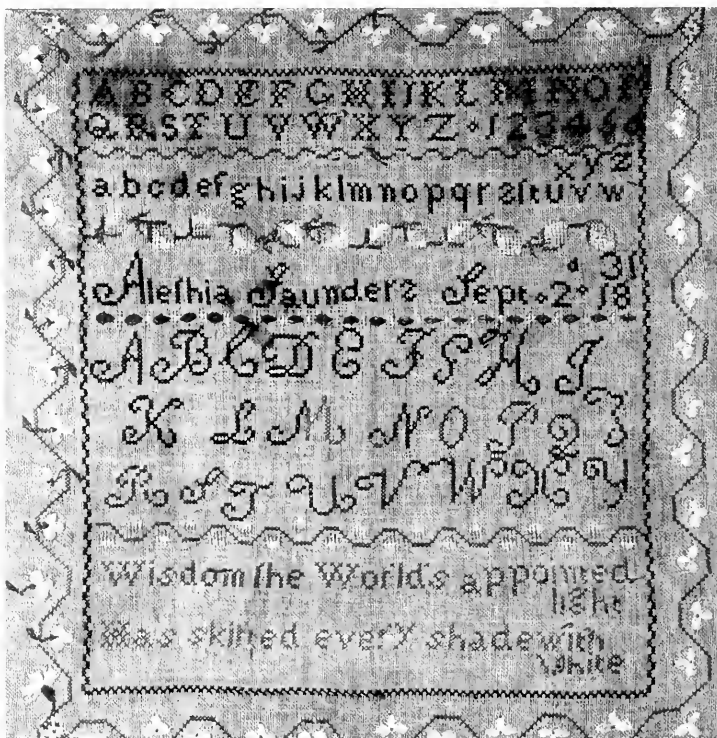 A B C D E F G H I J K L M N O P
Q R S T U V W X Y Z · 1 2 3 4 5 6
a b c d e f g h i j k l m n o p q r s ſ t u v w
x y z
Aleſhia Saunders Sept · 2d · 18
31
A B C D E F G H I
K L M N O P Q Z
R S T U V W X Y
Wisdom the Worlds appointed
light
Has skined every shade with
White